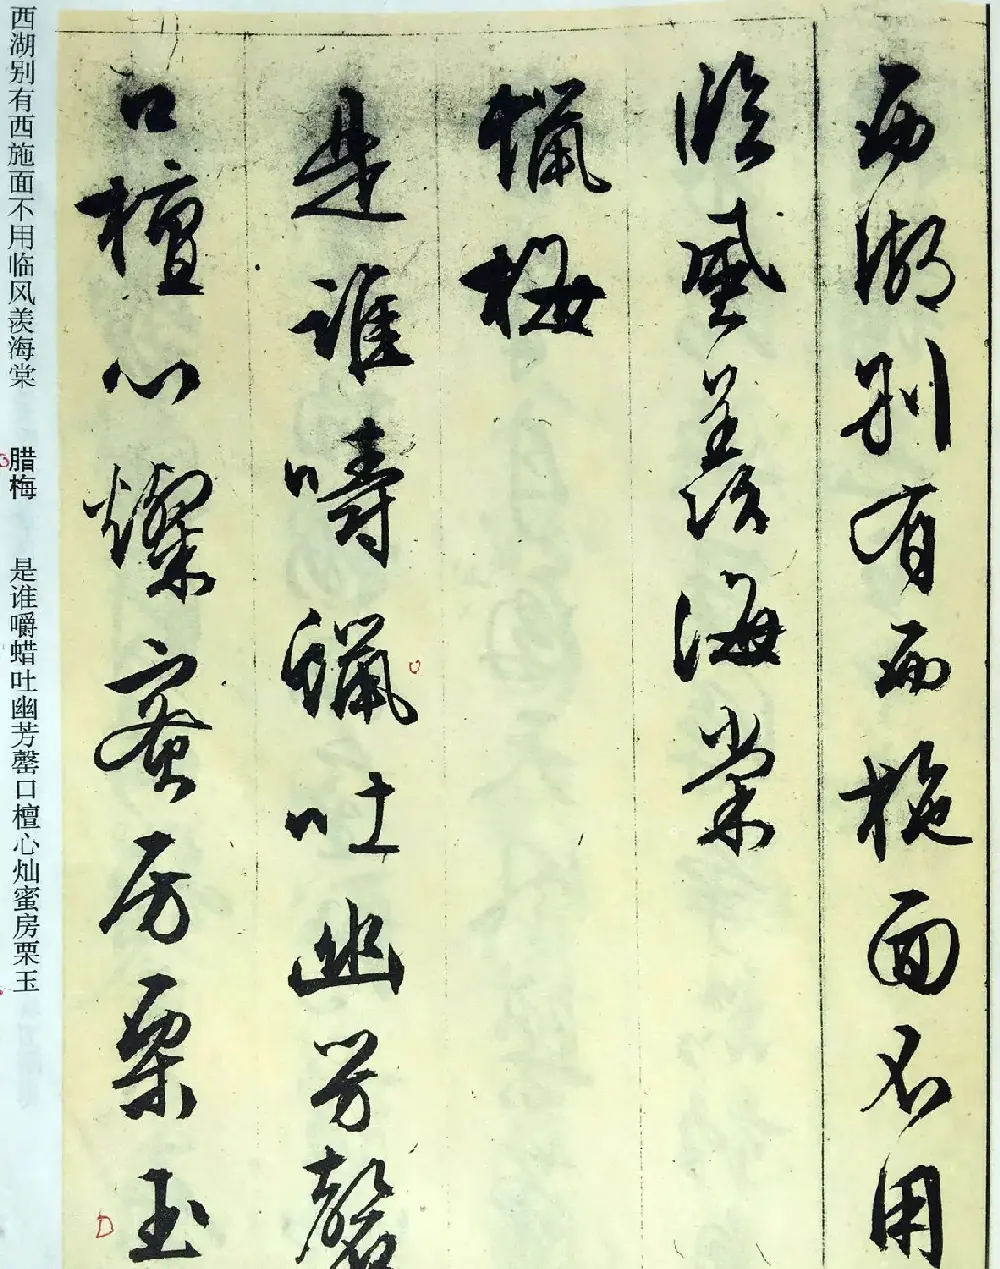 西湖别有西施面不用
临风羡海棠
蜡梅
是谁嚼蜡吐幽芳罄
口檀心灿蜜房栗玉
西湖别有西施面不用临风羡海棠 腊梅 是谁嚼蜡吐幽芳罄口檀心灿蜜房栗玉